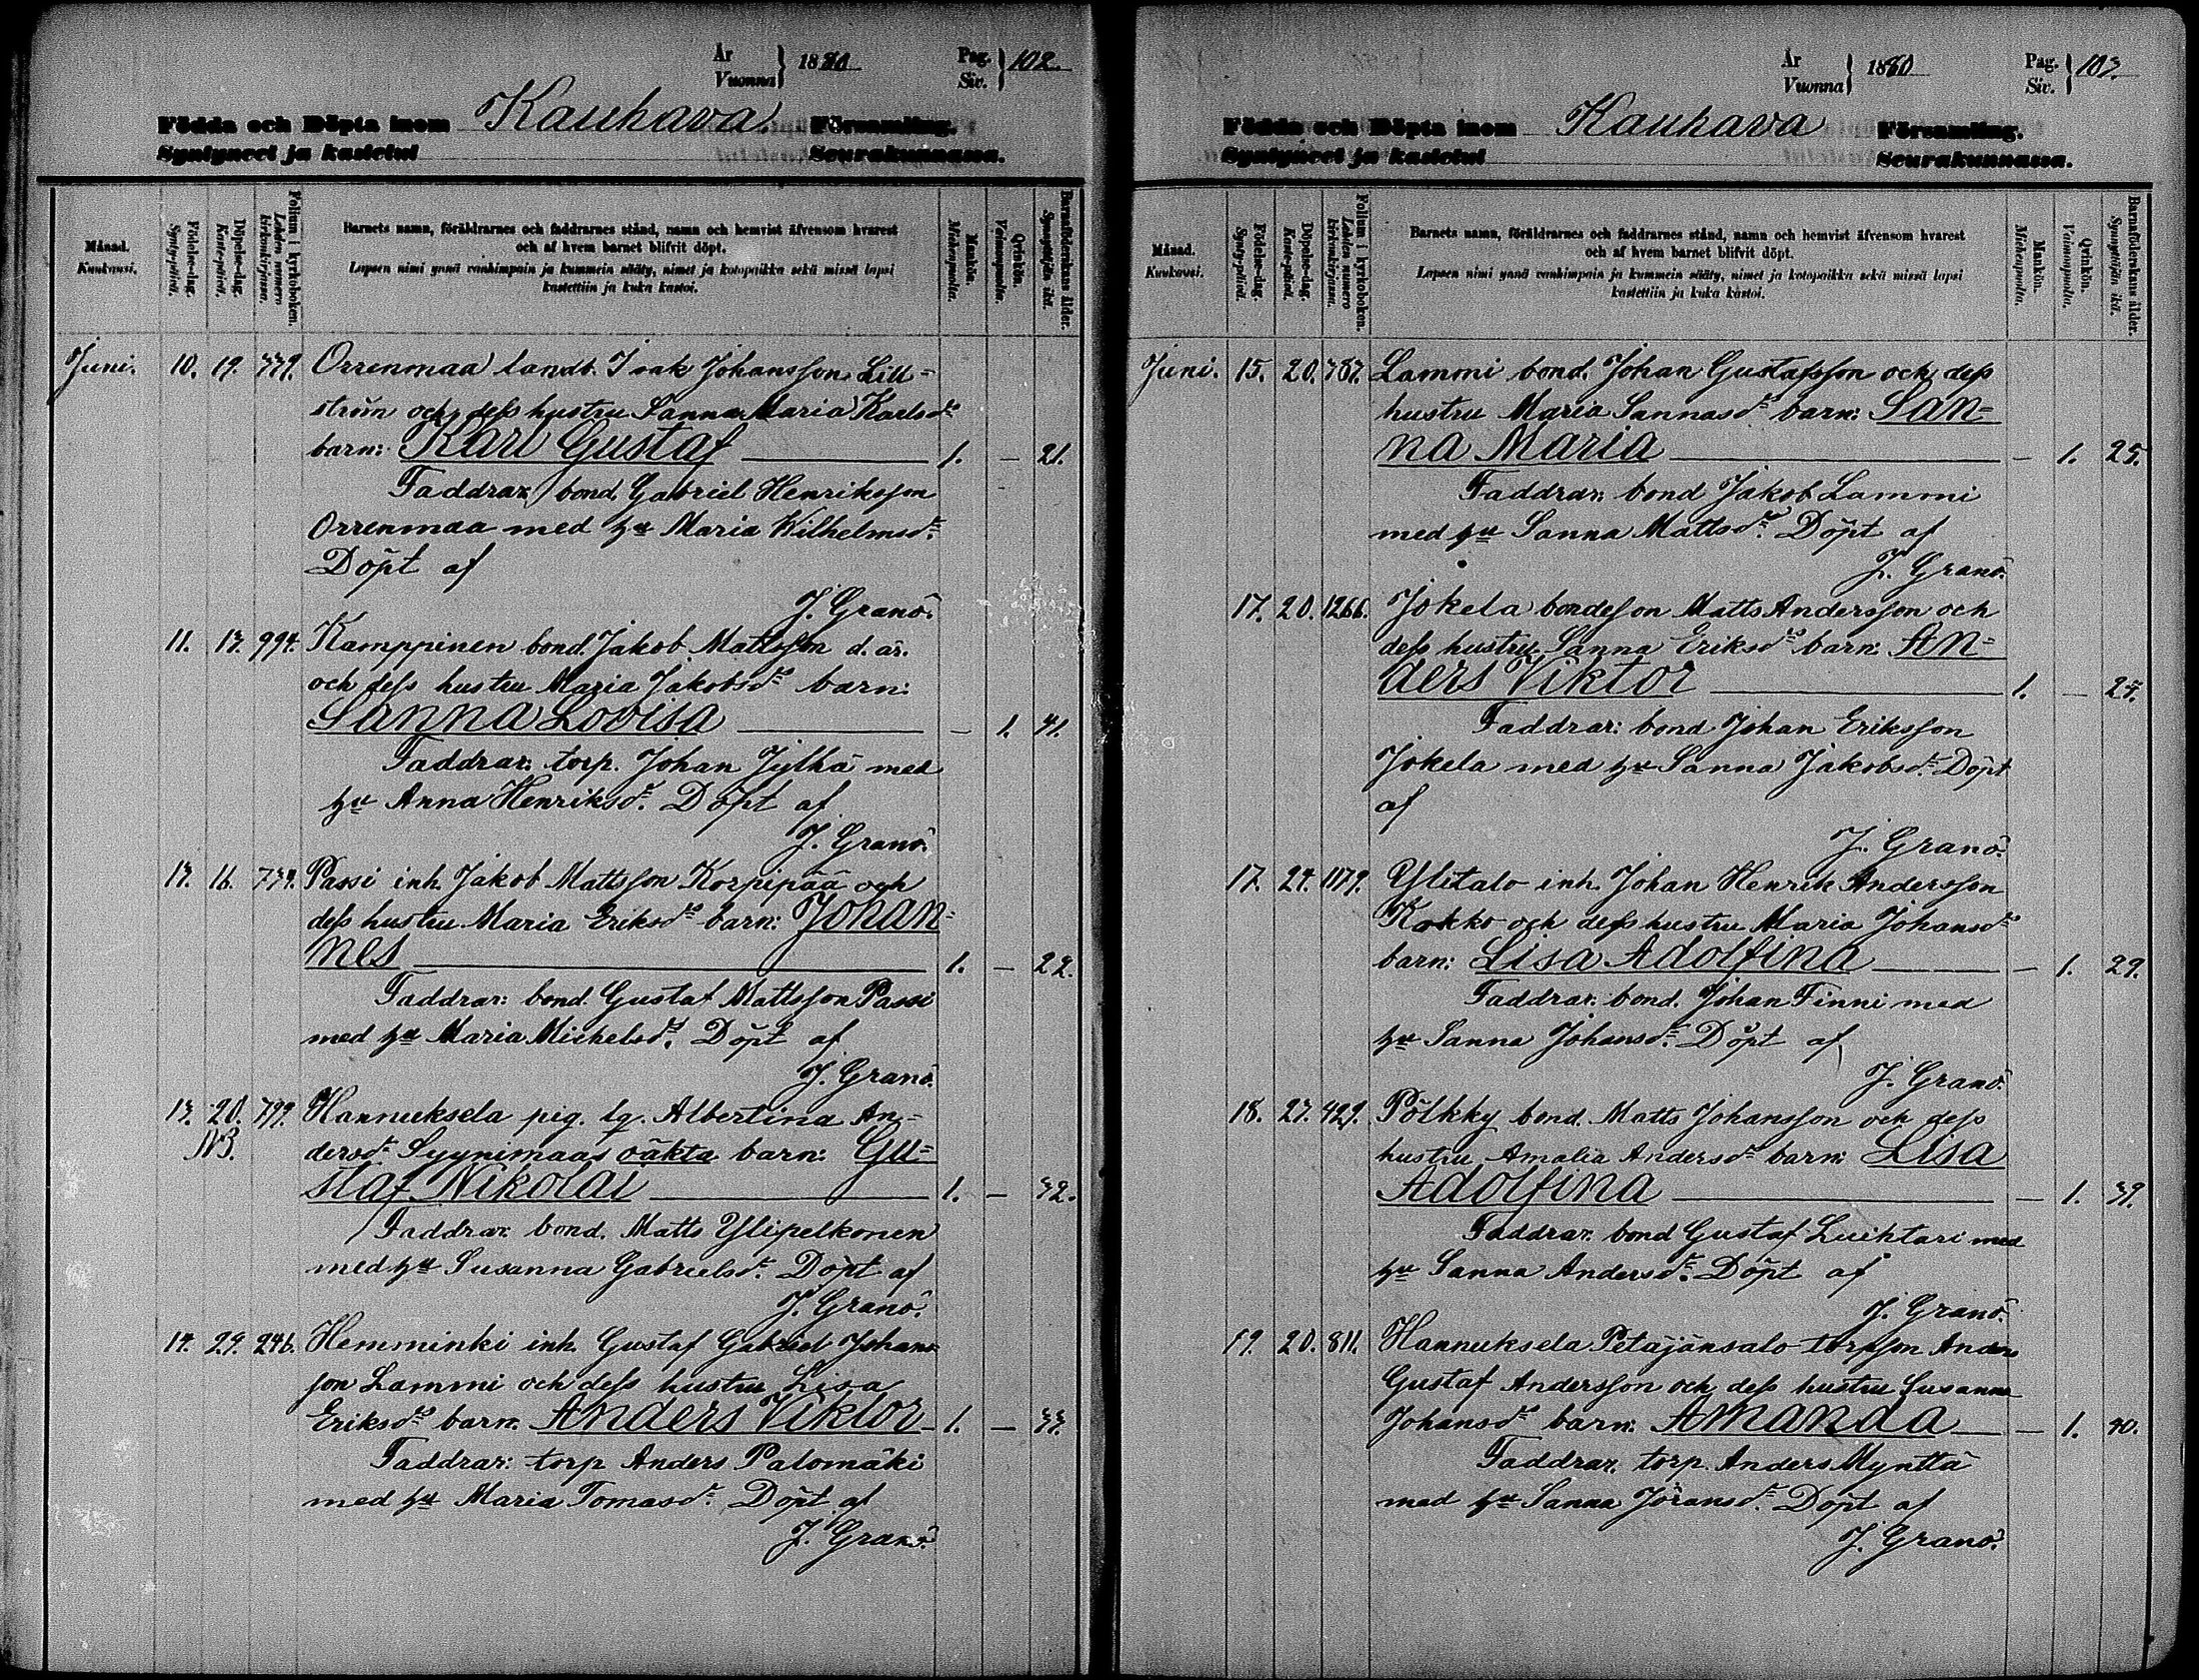 År
Vuonna } 1880
Pag.
Siv. } 102.
Födda och Döpta inom Kauhava Församling.
Syntyneet ja kastetut Seurakunnassa.
Månad.
Kuukausi.
Födelse-dag.
Synty-päivä.
Döpelse-dag.
Kaste-päivä.
Folium i kyrkoboken.
Lehden numero kirkonkirjassa.
Barnets namn, föräldrarnes och faddrarnes stånd, namn och hemvist äfvensom hvarest
och af hvem barnet blifvit döpt.
Lapsen nimi ynnä vanhimpain ja kummein sääty, nimet ja kotopaikka sekä missä lapsi
kastettiin ja kuka kastoi.
Mankön.
Miehenpuolia.
Qvinkön.
Vaimonpuolia.
Barnaföderskans ålder.
Synnyttäjän ikä.
Juni. 10. 19. 779. Orrenmaa landb. Isak Johansson Lill=
ström och dess hustru Sanna Maria Karlsd:s
barn: Karl Gustaf 1. — 21.
Faddrar: bond. Gabriel Henriksson
Orrenmaa med hu Maria Wilhelmsd:r
Döpt af
J. Granö.
11. 13. 994. Kamppinen bond. Jakob Mattsson d. är.
och dess hustru Maria Jakobsd:s barn:
Sanna Lovisa — 1. 41.
Faddrar: torp. Johan Jylhä med
hu Anna Henriksd:r Döpt af
J. Granö.
13. 16. 734. Passi inh. Jakob Mattsson Korpipää och
dess hustru Maria Eriksd:s barn: Johan=
nes 1. — 22.
Faddrar: bond. Gustaf Mattsson Passi
med hu Maria Michelsd:r Döpt af
J. Granö.
13. 20. 799. Hannuksela pig. lg. Albertina An=
NB. dersd:r Syynimaas oäkta barn: Gu=
staf Nikolai 1. — 32.
Faddrar: bond. Matts Ylipelkonen
med hu Susanna Gabrielsd:r Döpt af
J. Granö.
14. 29. 246. Hemminki inh. Gustaf Gabriel Johans
son Lammi och dess hustru Lisa
Eriksd:s barn: Anders Viktor 1. — 33.
Faddrar: torp Anders Palomäki
med hu Maria Tomasd:r Döpt af
J. Granö.
År
Vuonna } 1880
Pag.
Siv. } 103.
Födda och Döpta inom Kauhava Församling.
Syntyneet ja kastetut Seurakunnassa.
Månad.
Kuukausi.
Födelse-dag.
Synty-päivä.
Döpelse-dag.
Kaste-päivä.
Folium i kyrkoboken.
Lehden numero kirkonkirjassa.
Barnets namn, föräldrarnes och faddrarnes stånd, namn och hemvist äfvensom hvarest
och af hvem barnet blifvit döpt.
Lapsen nimi ynnä vanhimpain ja kummein sääty, nimet ja kotopaikka sekä missä lapsi
kastettiin ja kuka kastoi.
Mankön.
Miehenpuolia.
Qvinkön.
Vaimonpuolia.
Barnaföderskans ålder.
Synnyttäjän ikä.
Juni. 15. 20. 787. Lammi bond. Johan Gustafsson och dess
hustru Maria Sannasd:s barn: San=
na Maria — 1. 25.
Faddrar: bond Jakob Lammi
med hu Sanna Mattsd:r Döpt af
J. Granö.
17. 20. 1266. Jokela bondeson Matts Andersson och
dess hustru Sanna Eriksd:s barn: An=
ders Viktor 1. —
Faddrar: bond Johan Eriksson
Jokela med hu Sanna Jakobsd:r Döpt
af
J. Granö.
17. 27. 1179. Ylitalo inh. Johan Henrik Andersson
Kokko och dess hustru Maria Johansd:s
barn: Lisa Adolfina — 1. 29.
Faddrar: bond. Johan Finni med
hu Sanna Johansd:r Döpt af
J. Granö.
18. 27. 429. Pölkky bond. Matts Johansson och dess
hustru Amalia Andersd:s barn: Lisa
Adolfina — 1. 39.
Faddrar: bond Gustaf Luihtari med
hu Sanna Andersd:r Döpt af
J. Granö.
19. 20. 811. Hannuksela Petäjänsalo torpson Anders
Gustaf Andersson och dess hustru Susanna
Johansd:s barn: Amanda — 1. 40.
Faddrar: torp. Anders Mynttä
med hu Sanna Jöransd:r Döpt af
J. Granö.